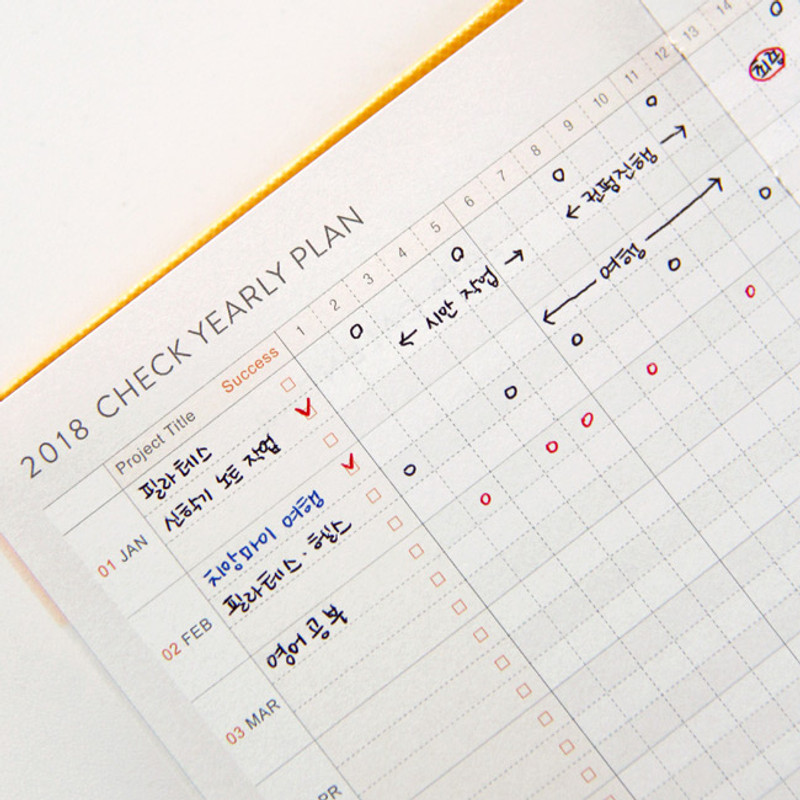 2018 CHECK YEARLY PLAN
Project Title Success 1 2 3 4 5 6 7 8 9 10 11 12 13 14
01 JAN
필라테스
신학기 노트 작업 ← 시안 작업 → ← 컨펌진행 →
02 FEB
치앙마이 여행 ← 여행 →
필라테스 · 헬스
03 MAR
영어 공부
PR